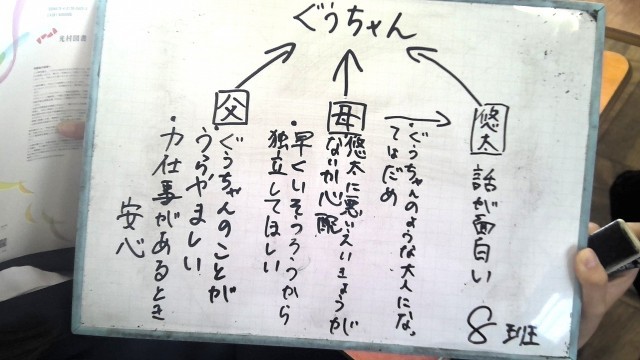 ぐうちゃん
悠太
話が面白い
・ぐうちゃんのような大人になっ
てはだめ
母
悠太に悪いえいきょうが
ないか心配
・早くいそうろうから
独立してほしい
父
・ぐうちゃんのことが
うらやましい
・力仕事があるとき
安心
8班
光村図書